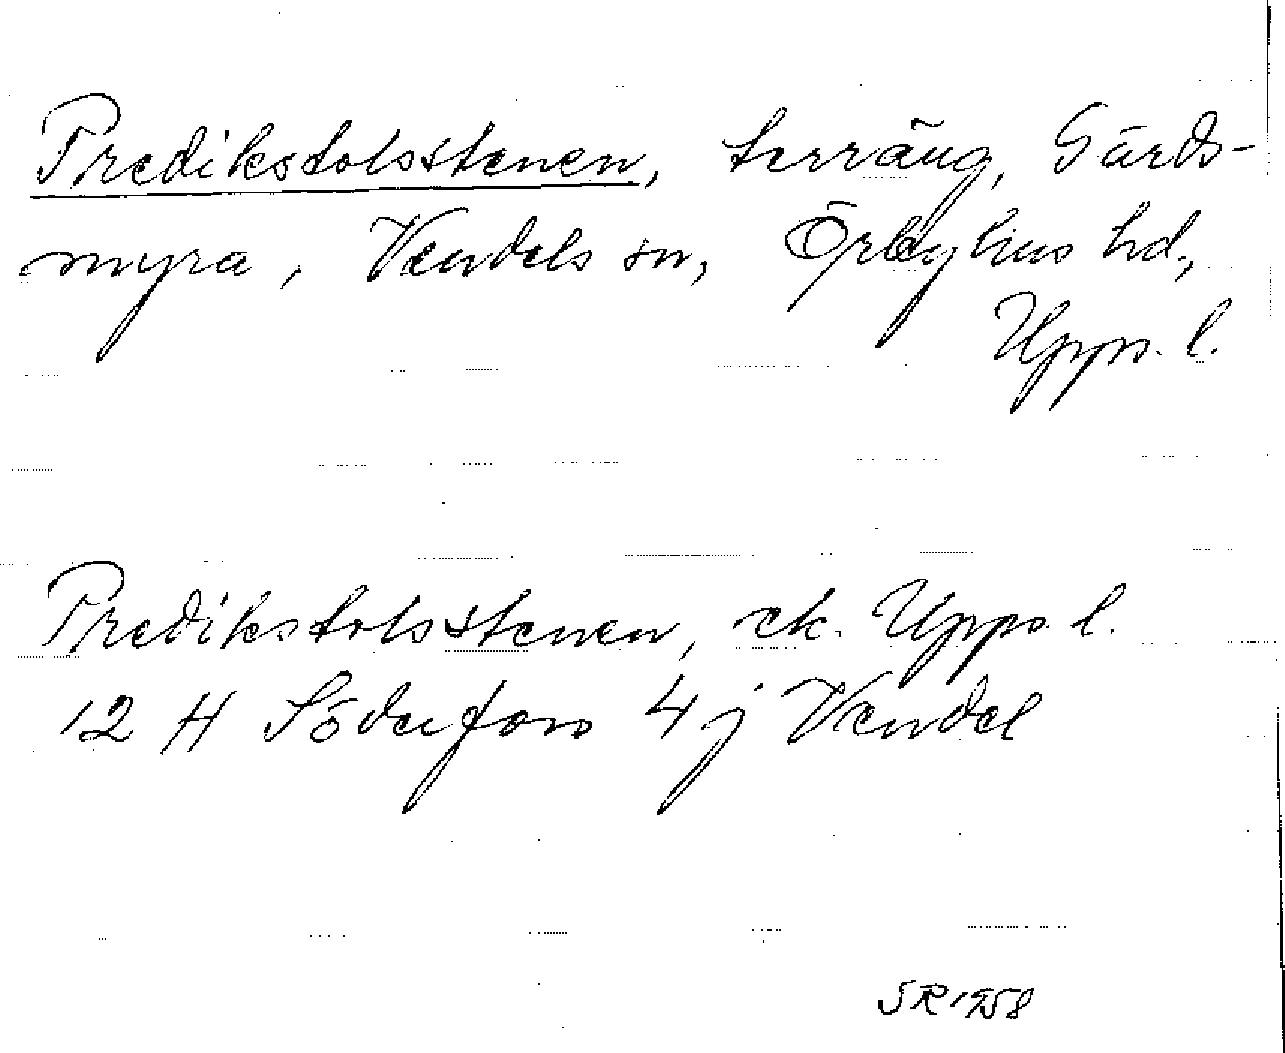 Predikstolsstenen, terräng, Gärds-
myra, Vendels sn, Örbyhus hd,
Upps. l.
Predikstolsstenen, ek. Upps. l.
12 H Söderfors 4 j Vendel
SR 1958